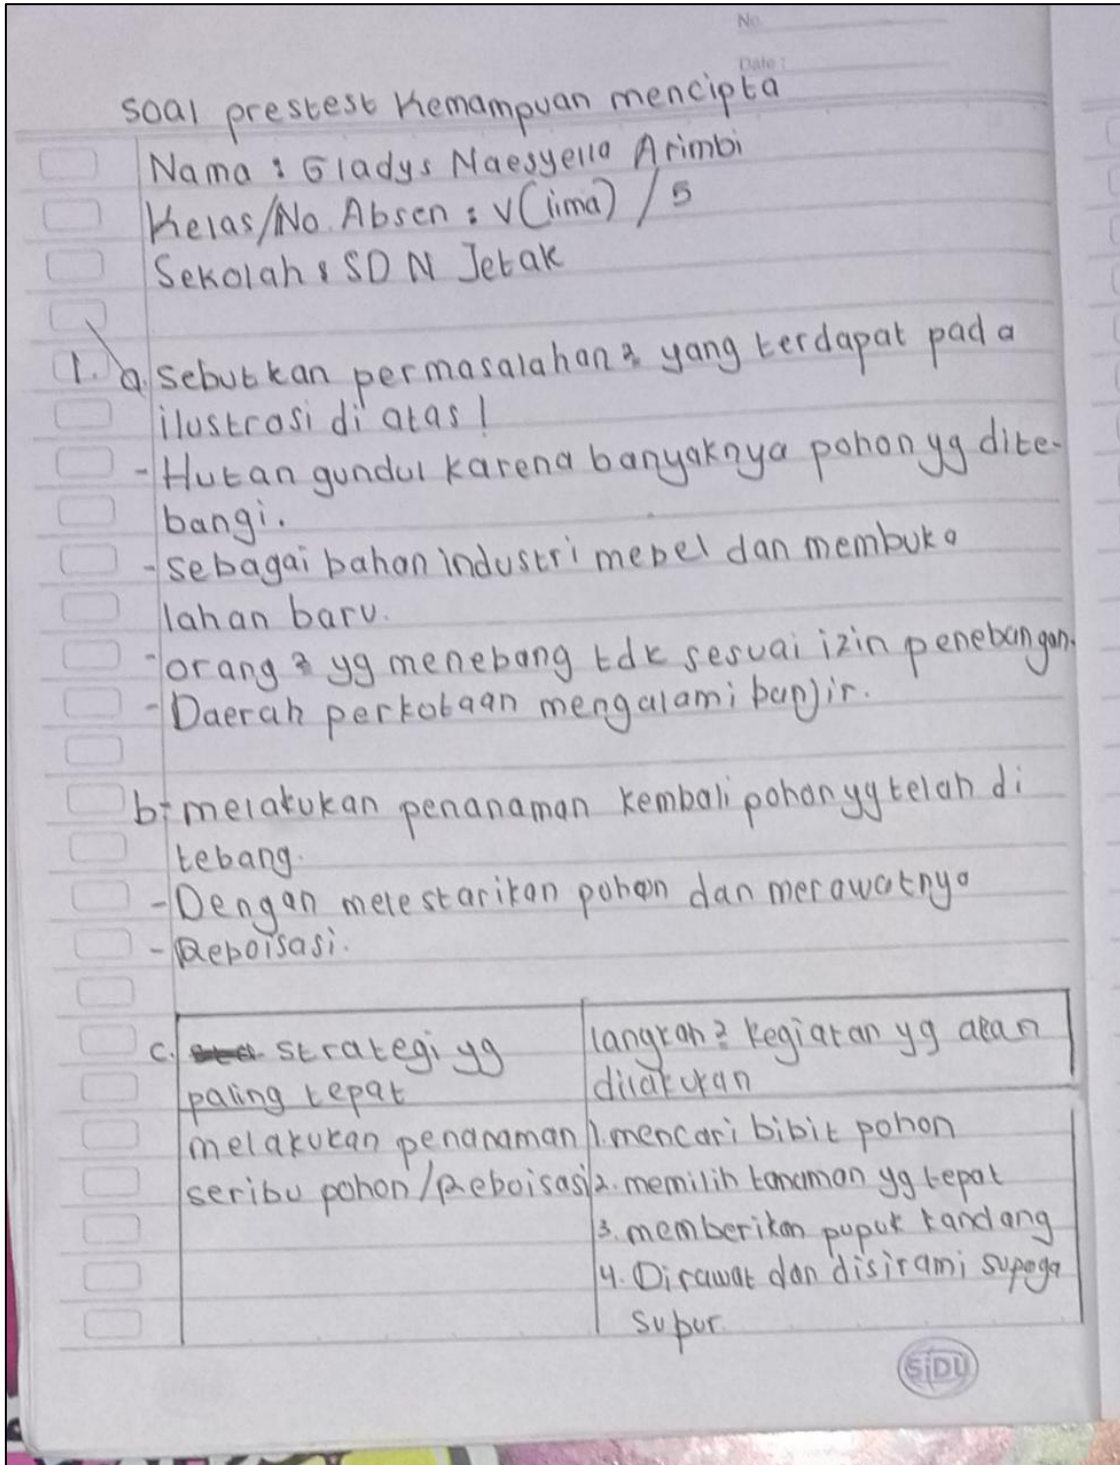 No.
Date :
soal prestest Kemampuan mencipta
Nama : Gladys Naesyella Arimbi
Kelas/No. Absen : V (lima) / 5
Sekolah : SD N Jetak
1. a. sebutkan permasalahan2 yang terdapat pada
ilustrasi di atas!
- Hutan gundul karena banyaknya pohon yg dite-
bangi.
- sebagai bahan industri mebel dan membuka
lahan baru.
- orang2 yg menebang tdk sesuai izin penebangan.
- Daerah perkotaan mengalami banjir.
b. - melakukan penanaman kembali pohon yg telah di
tebang.
- Dengan melestarikan pohon dan merawatnya
- Reboisasi.
c. strategi yg
paling tepat
langkah2 kegiatan yg akan
dilakukan
melakukan penanaman
seribu pohon/Reboisasi
1. mencari bibit pohon
2. memilih tanaman yg tepat
3. memberikan pupuk kandang
4. Dirawat dan disirami supaya
subur.
SiDU